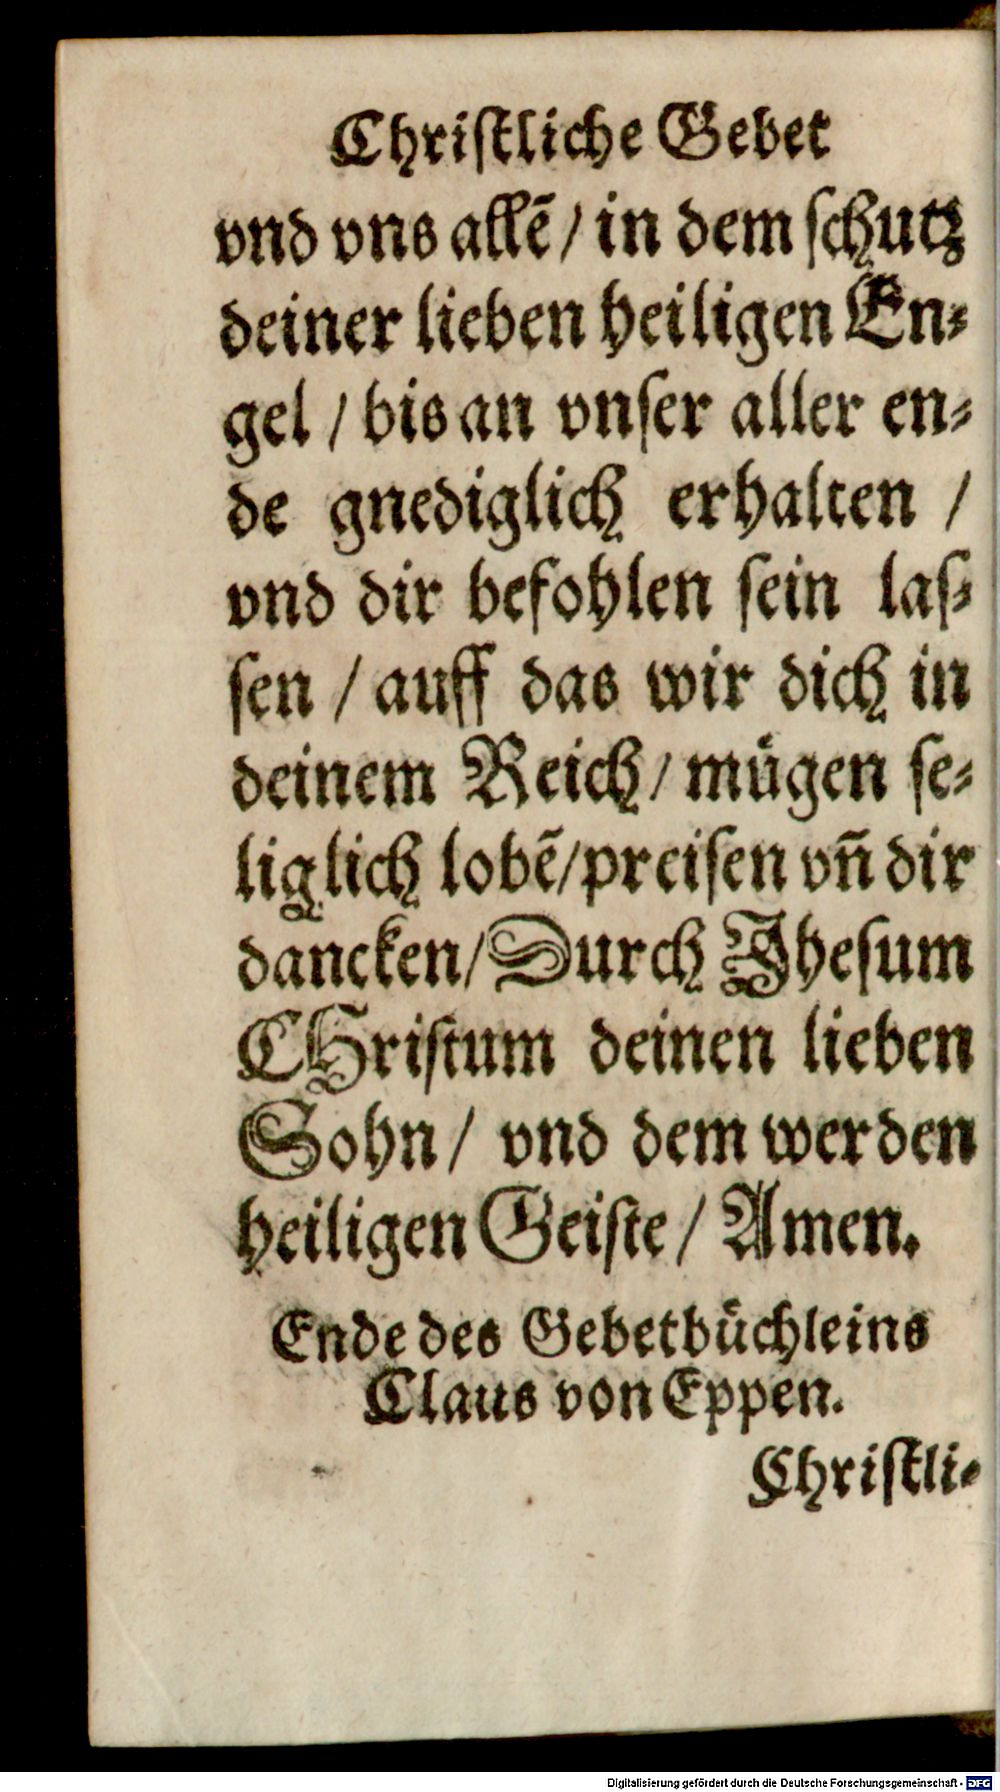 Christliche Gebet
vnd vns allē / in dem schutz
deiner lieben heiligen En⸗
gel / bis an vnser aller en⸗
de gnediglich erhalten /
vnd dir befohlen sein las⸗
sen / auff das wir dich in
deinem Reich / mügen se⸗
liglich lobē / preisen vñ dir
dancken / Durch Jhesum
CHristum deinen lieben
Sohn / vnd dem werden
heiligen Geiste / Amen.
Ende des Gebetbüchleins
Claus von Eppen.
Christli⸗
Digitalisierung gefördert durch die Deutsche Forschungsgemeinschaft - DFG